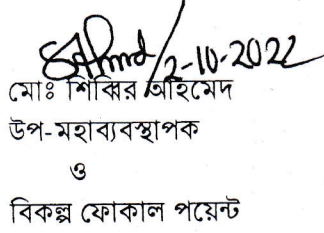 2-10-2022
মোঃ শিব্বির আহমেদ
উপ-মহাব্যবস্থাপক
ও
বিকল্প ফোকাল পয়েন্ট